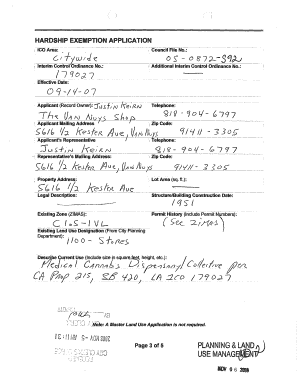 HARDSHIP EXEMPTION APPLICATION
ICO Area: Council File No.:
Citywide 05-0872-S92
Interim Control Ordinance No.: Additional Interim Control Ordinance No.:
179027
Effective Date:
09-14-07
Applicant (Record Owner) Justin Keirn Telephone:
The Van Nuys Shop 818-904-6797
Applicant Mailing Address Zip Code:
5616 1/2 Kester Ave, Van Nuys 91411-3305
Applicant's Representative Telephone:
Justin Keirn 818-904-6797
Representative's Mailing Address Zip Code:
5616 1/2 Kester Ave, Van Nuys 91411-3305
Property Address: Lot Area (sq. ft.):
5616 1/2 Kester Ave
Legal Description: Structure/Building Construction Date:
1951
Existing Zone (ZIMAS): Permit History (Include Permit Numbers):
C1.5-1VL (See Zimas)
Existing Land Use Designation (From City Planning
Department):
1100-Stores
Describe Current Use (Include size in square feet, height, etc.):
Medical Cannabis Dispensary/Collective per
CA Prop 215, SB 420, LA ICO 179027
Note: A Master Land Use Application is not required.
Page 3 of 6
PLANNING & LAND
USE MANAGEMENT